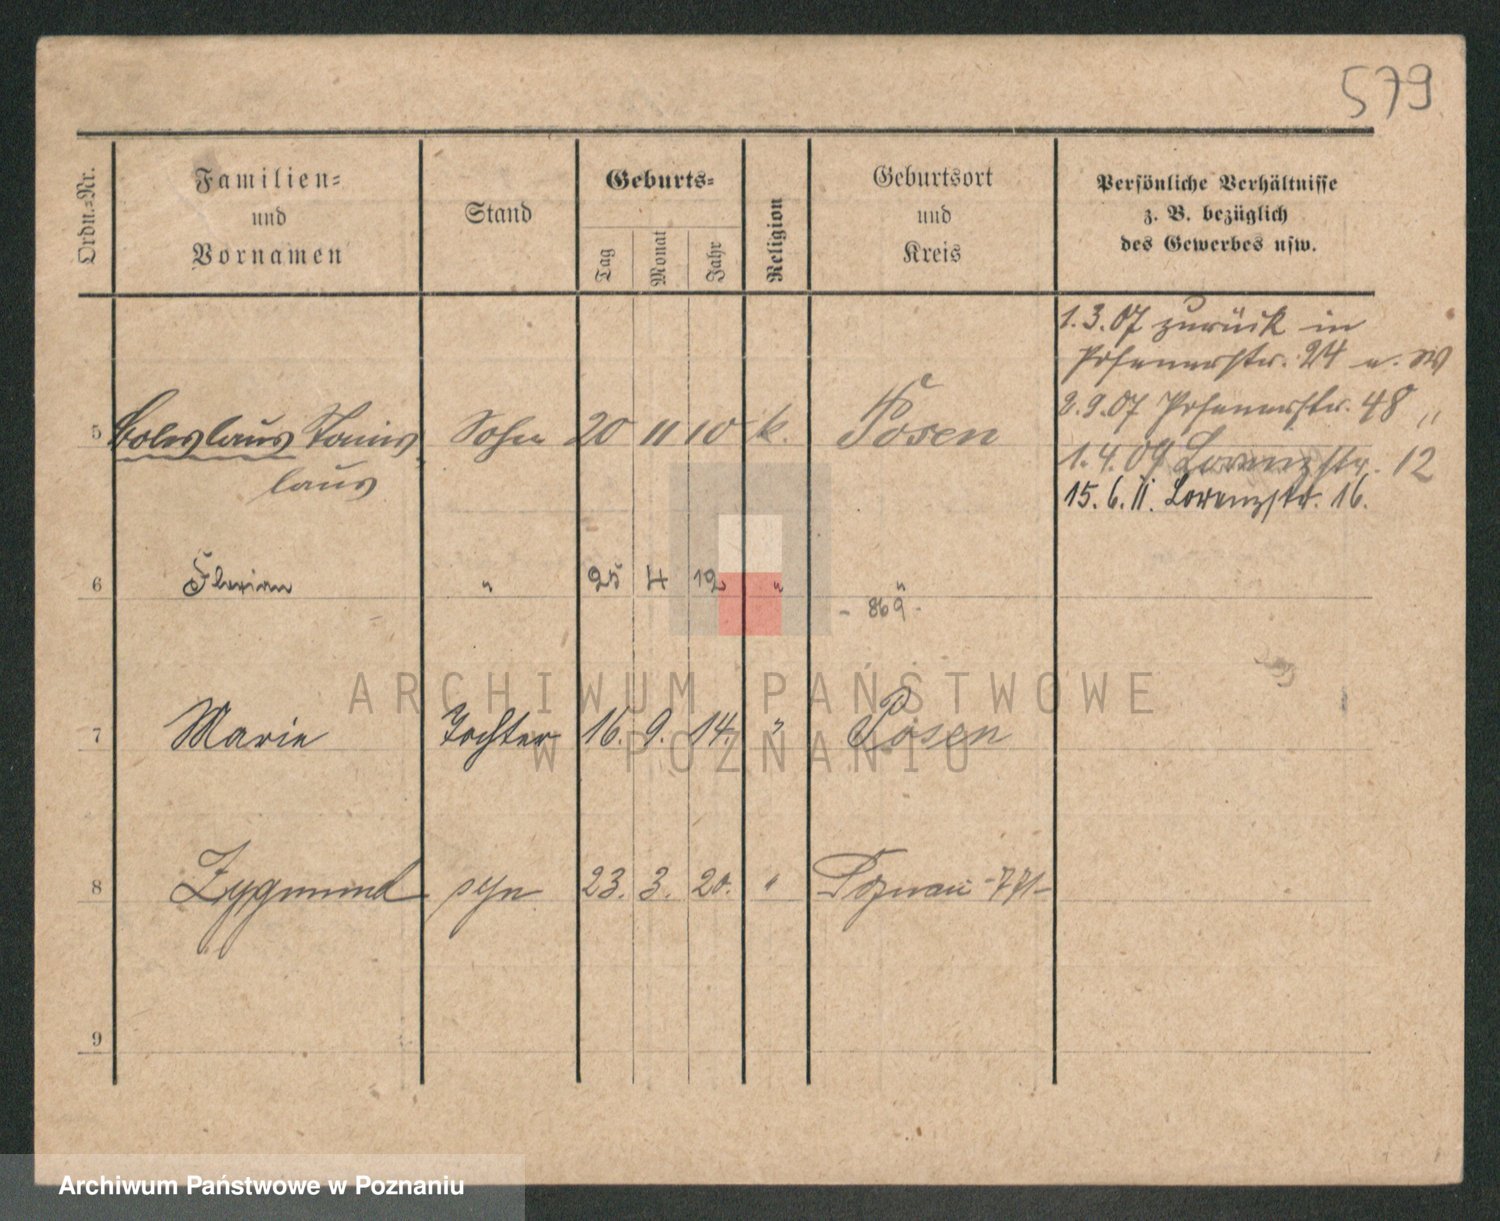 579
Ordn.-Nr.
Familien-
und
Vornamen
Stand
Geburts-
Tag
Monat
Jahr
Religion
Geburtsort
und
Kreis
Persönliche Verhältnisse
z. B. bezüglich
des Gewerbes usw.
1.3.07 zurück in
Posenerstr. 24
2.9.07 Posenerstr. 48 "
1.4.09 Lorenzstr. 12
15.6.11. Lorenzstr. 16.
5 Boleslaus Stanis
laus
Sohn 20 11 10 k. Posen
6 Florian " 25 4 12 " "
- 869 -
7 Marie Tochter 16. 9. 14. " Posen
8 Zygmund syn 23. 3. 20. " Poznań -771-
9
ARCHIWUM PAŃSTWOWE
W POZNANIU
Archiwum Państwowe w Poznaniu